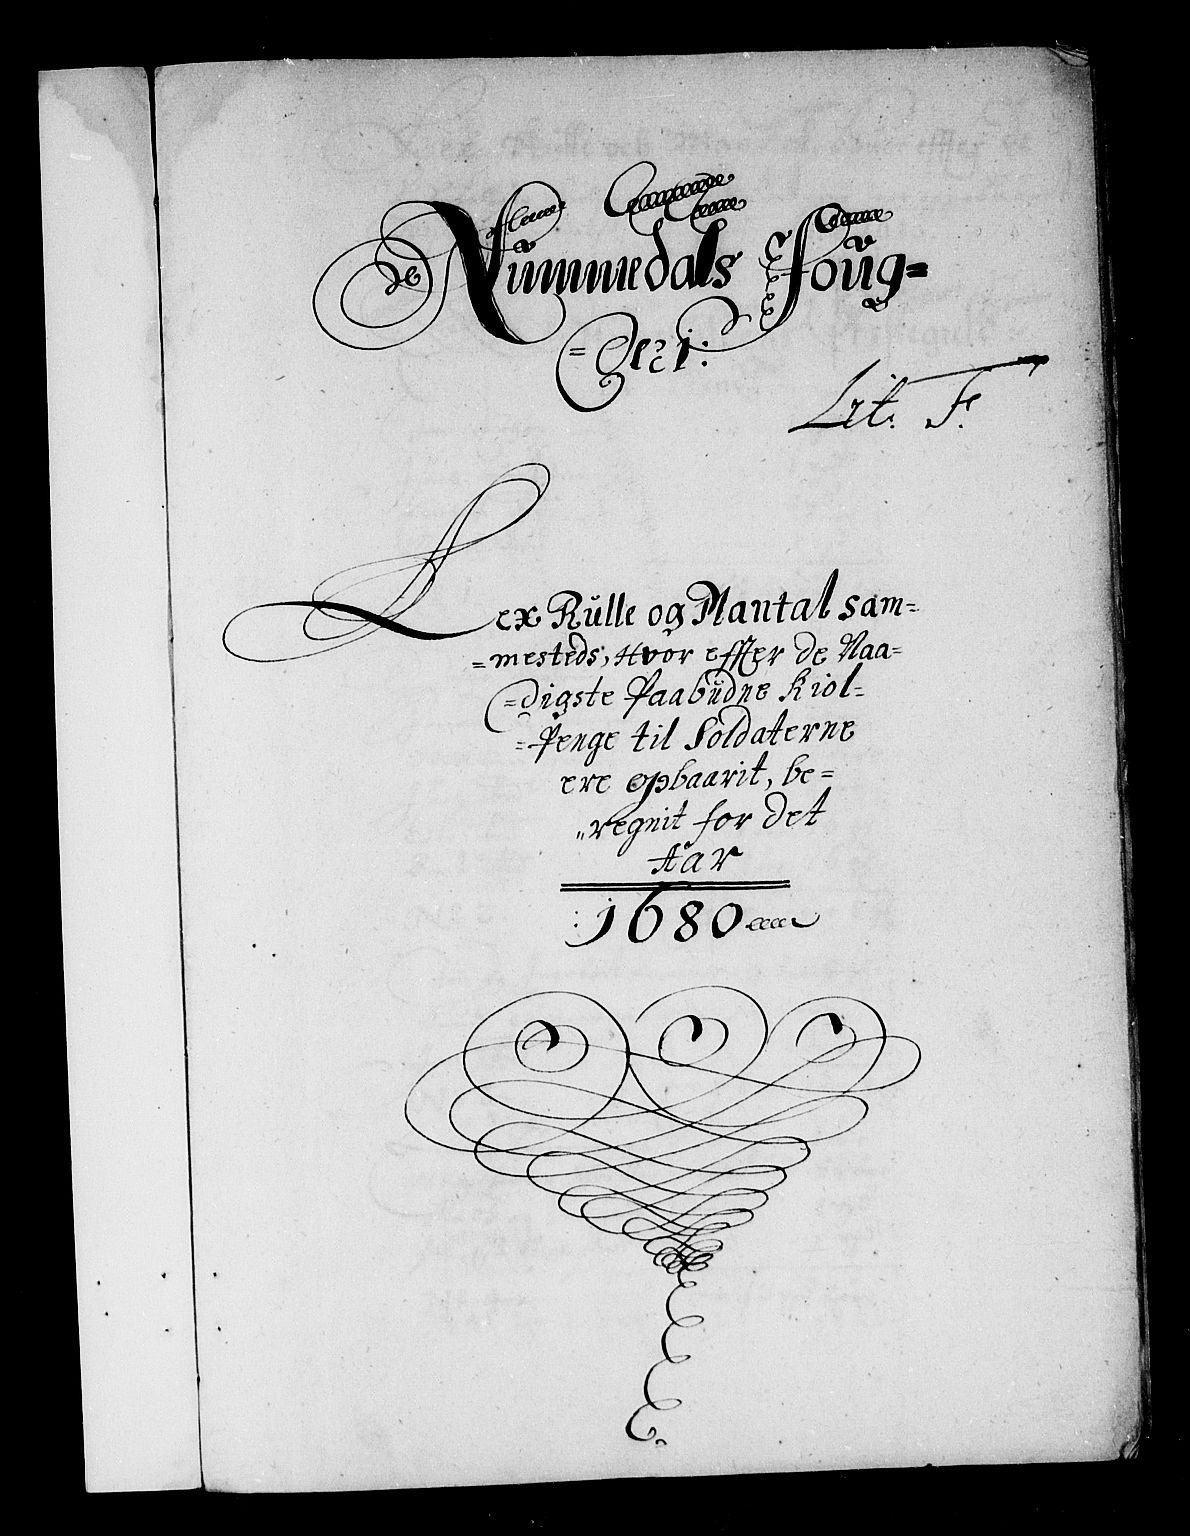 Nummedals Foug=
=deri:
Lit. F.
Lex Rulle og Mantal sam=
=mesteds, Hvor effter de Naa=
=digste Paabudne Kiol=
=Penge til Soldaterne
ere opbaarit, be=
„regnit for det
Aar
:1680